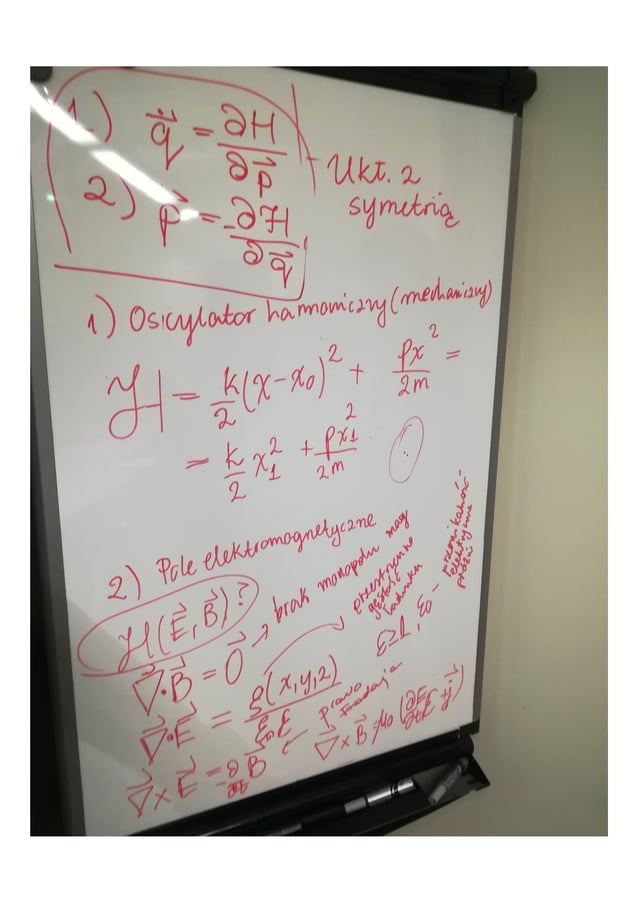 1) q̇⃗ = ∂H/∂p⃗
2) ṗ⃗ = -∂H/∂q⃗
Ukł. z
symetrią
1) Oscylator harmoniczny (mechaniczny)
H = k/2 (x - x₀)² + px²/2m =
= k/2 x₁² + px₁²/2m
2) Pole elektromagnetyczne
H(E⃗, B⃗)?
∇⃗·B⃗ = 0⃗ → brak monopolu mag
∇⃗·E⃗ = ρ(x,y,z)/ε₀ε
przestrzenna
gęstość
ładunku
ε≥1, ε₀ -
przenikalność
elektryczna
próżni
∇⃗×E⃗ = -∂B⃗/∂t
prawo
Faradaya
∇⃗×B⃗ = μ₀(∂E/∂t ε + j⃗)